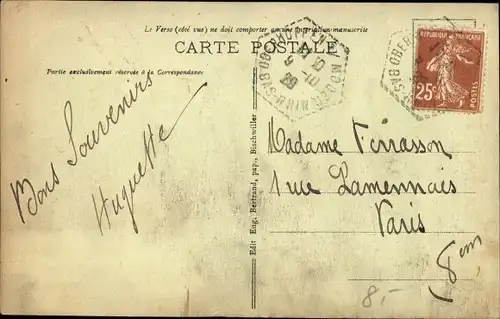 Le Verso (côté vue) ne doit comporter aucune interlation manuscrite
CARTE POSTALE
Partie exclusivement réservée à la Correspondance
REPUBLIQUE FRANÇAISE
25c
POSTES
9 -10
29
BAS-RHIN
Bons Souvenirs
Huguette
Edit Eug. Bertrand, pap., Bischwiller
Madame Terrasson
1 rue Lamennais
Paris
8em
8,-